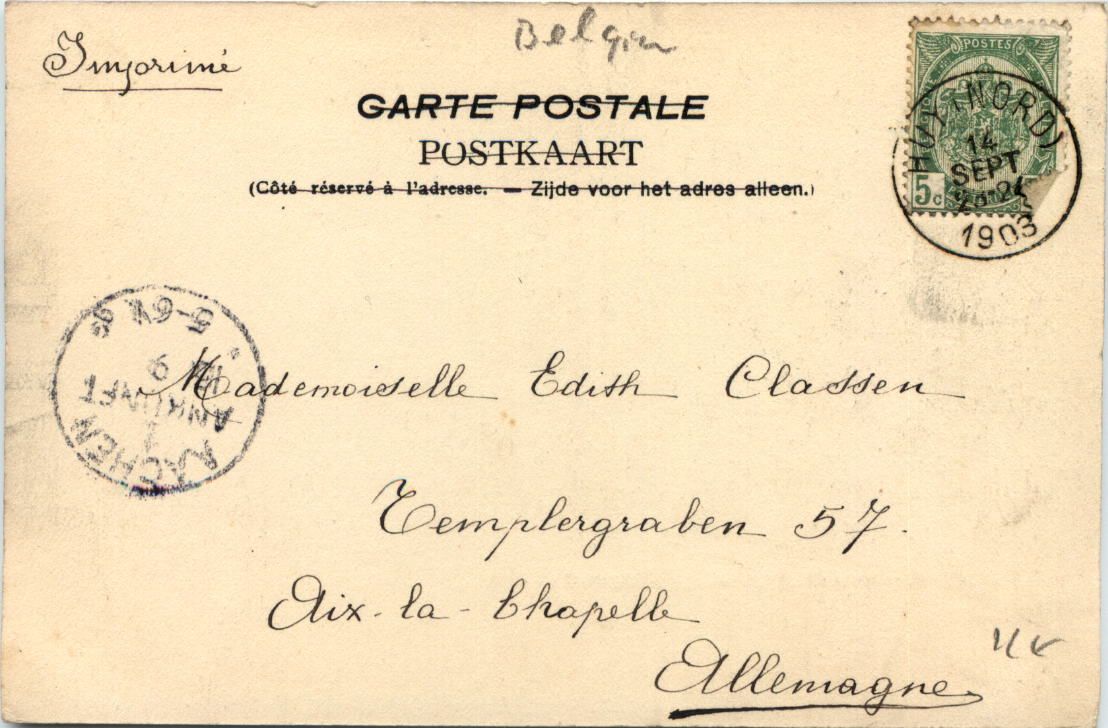 Belgien
Imprimé
CARTE POSTALE
POSTKAART
(Côté réservé à l'adresse. — Zijde voor het adres alleen.)
POSTES
5c
HUY (NORD)
14
SEPT
1903
5-6V
9
ANKUNFT
1
AACHEN
Mademoiselle Edith Classen
Templergraben 57.
Aix-la-Chapelle
Allemagne